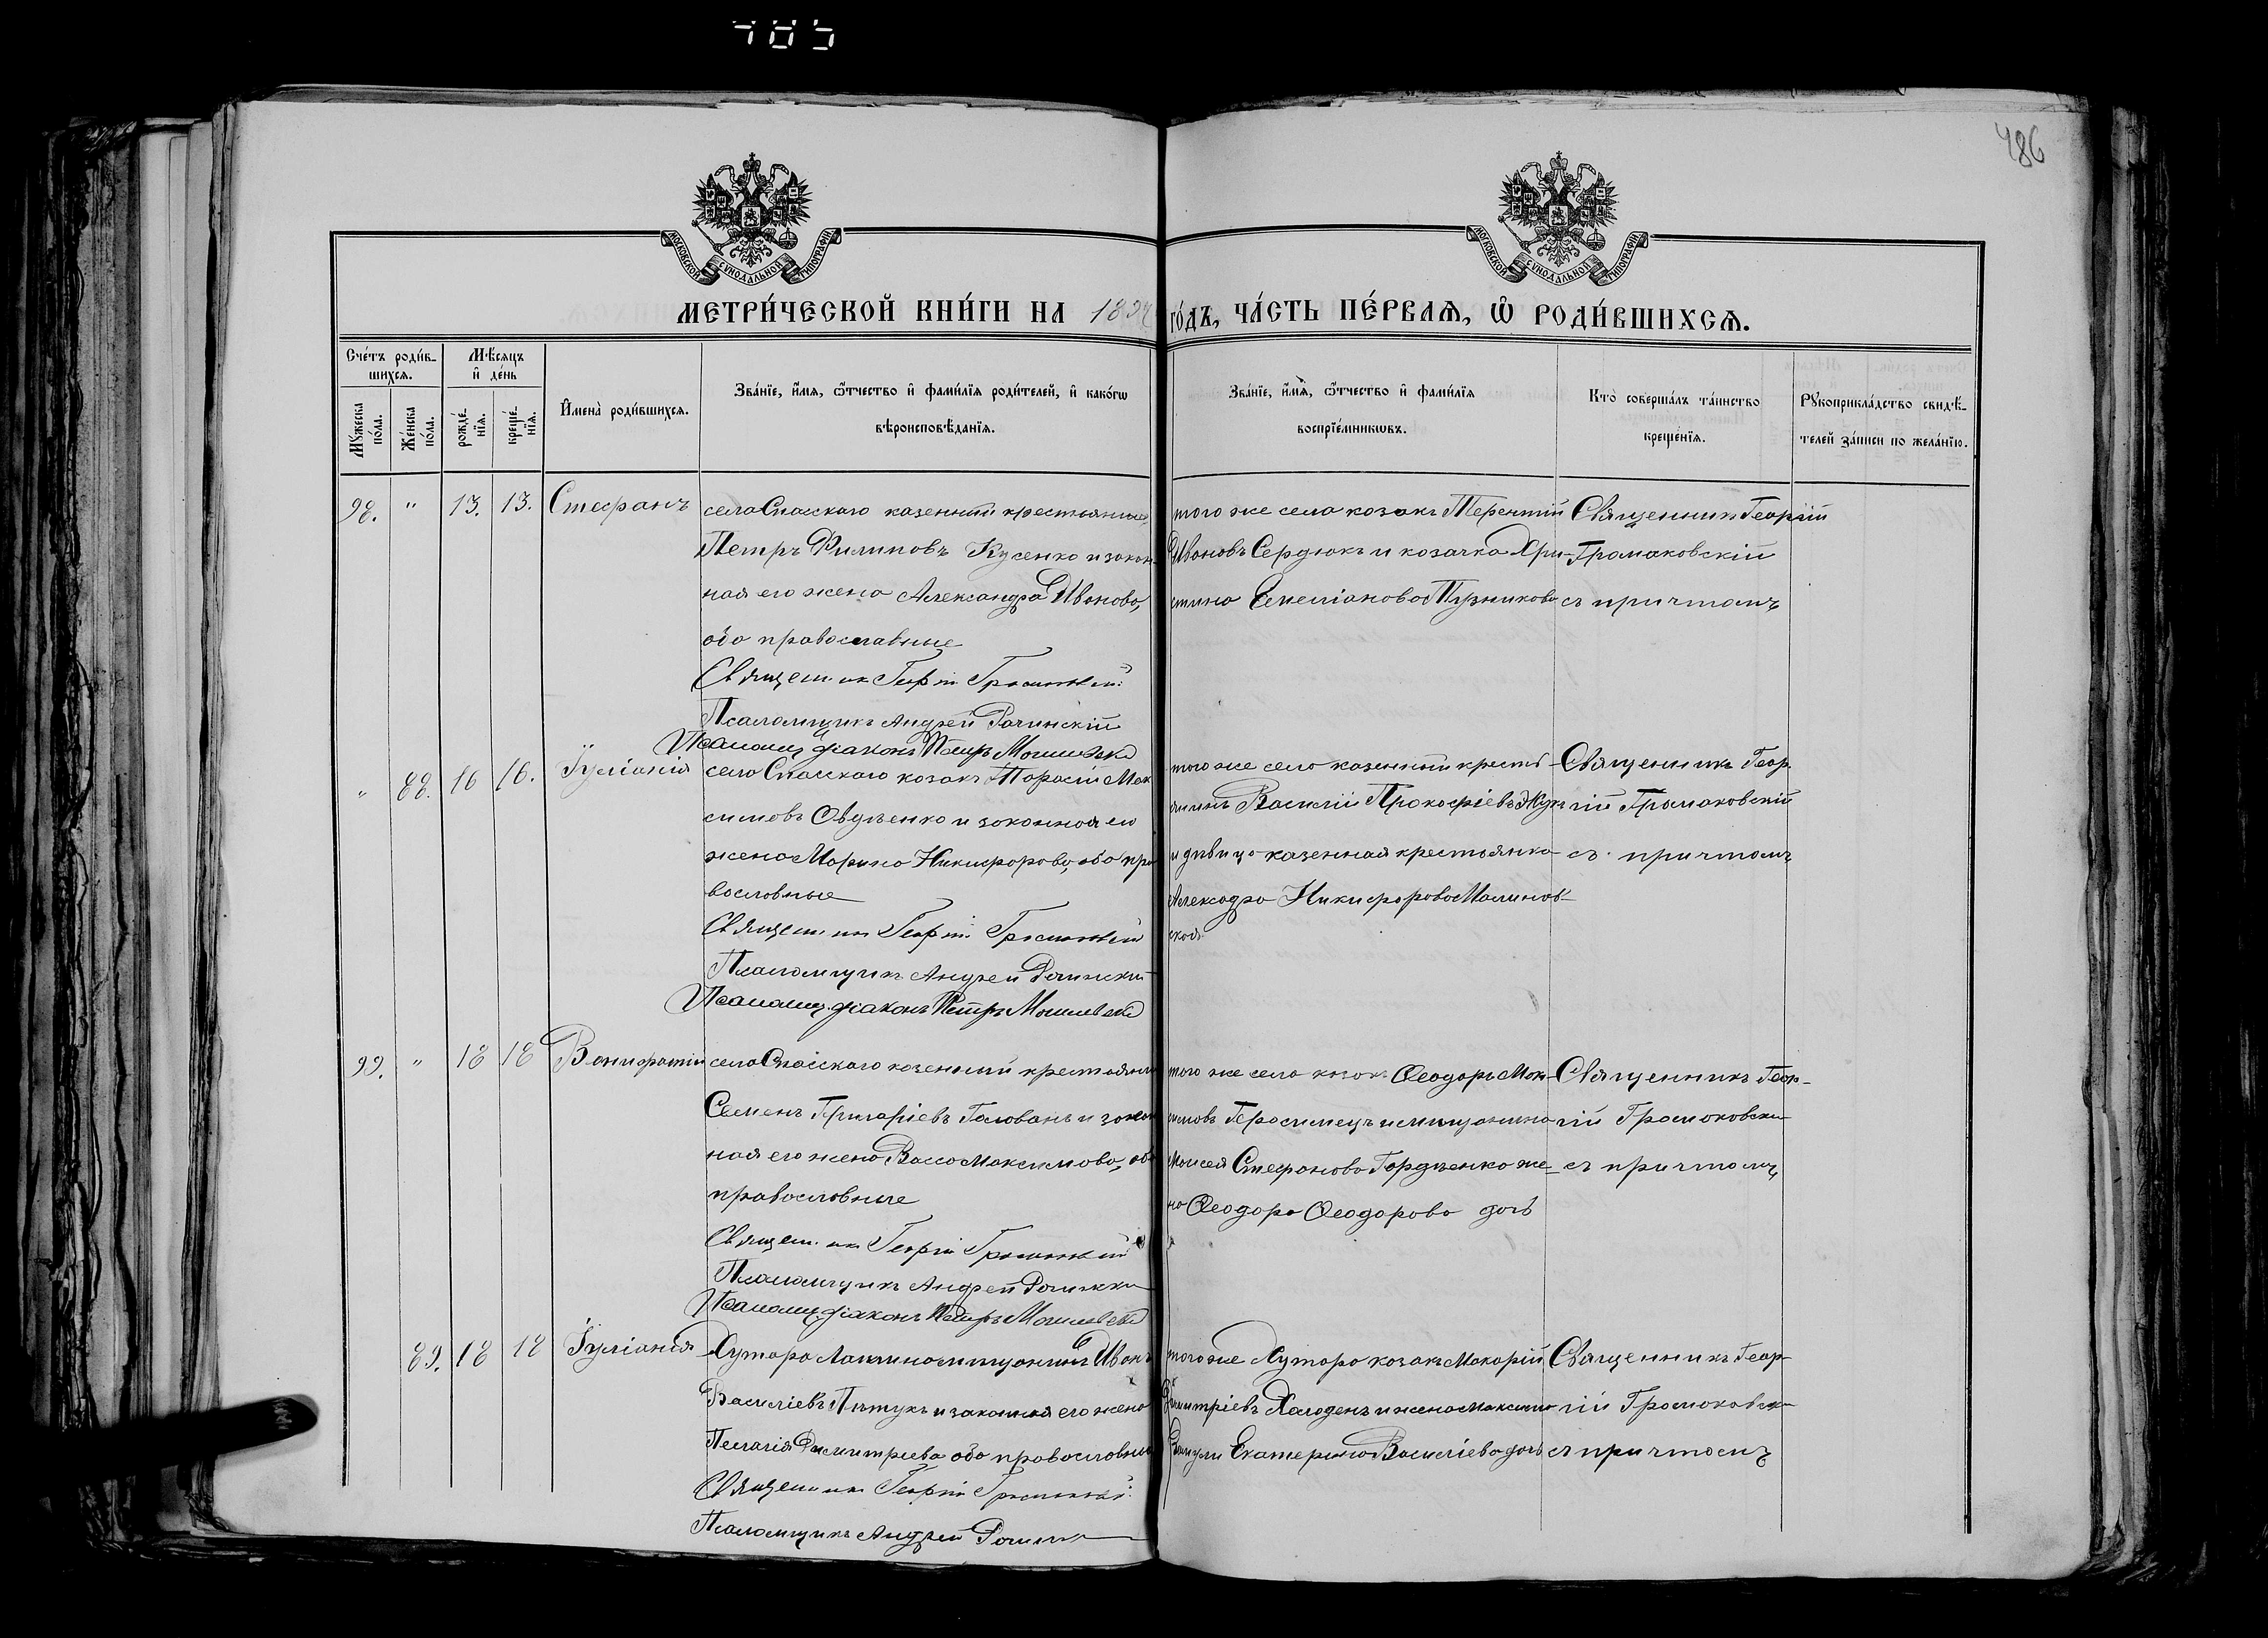 485
486
МОСКОВСКОЙ СУНОДАЛЬНОЙ ТИПОГРАФІИ
МОСКОВСКОЙ СУНОДАЛЬНОЙ ТИПОГРАФІИ
МЕТРИ́ЧЕСКОЙ КНИ́ГИ НА 189 го́дъ, ЧА́СТЬ ПЕ́РВАѦ, Ѡ҆ РОДИ́ВШИХСѦ.
Сче́тъ роди́в-
шихсѧ.
Мѣ́сѧцъ
и҆ де́нь
Мꙋ́жеска по́ла.
Же́нска по́ла.
рожде́-
нїѧ.
креще́-
нїѧ.
И҆мена̀ роди́вшихсѧ.
Зва́нїе, и҆́мѧ, ѻ҆́тчество и҆ фами́лїѧ роди́телей, и҆ како́гѡ
вѣроисповѣ́данїѧ.
Зва́нїе, и҆́мѧ, ѻ҆́тчество и҆ фами́лїѧ
воспрїе́мникѡвъ.
Кто̀ соверша́лъ та́инство
креще́нїѧ.
Рꙋкоприкла́дство свидѣ́-
телей за́писи по жела́нїю.
98. " 13. 13. Стефанъ
села Спасскаго казенный крестьянинъ
Петръ Филиповъ Кусенко и закон-
ная его жена Александра Иванова,
оба православные
Священникъ Георгій Громаковскій
Псаломщикъ Андрей Рочинскій
Псаломщ. діаконъ Петръ
того же села козакъ Терентій
Ивановъ Сердюкъ и козачка Хри-
стина Емеліанова Пузикова
Священникъ Георгій
Громаковскій
съ причтомъ
" 88. 16 16. Іуліанія
села Спасскаго козакъ Тарасій Мак
симовъ Овдѣенко и законная его
жена Марина Никифорова, оба пра
вославные
Священникъ Георгій Громаковскій
Псаломщикъ Андрей Рочинскій
Псаломщ. діаконъ Петръ
того же села казенный кресть-
янинъ Василій Прокофіевъ
и дѣвица казенная крестьянка
Алексадра Никифорова Малинов-
ская
Священникъ Геор-
гій Громаковскій
съ причтомъ
99. " 18 18 Вонифатій
села Спасскаго казенный крестьянин
Семенъ Григоріевъ Головань и закон
ная его жена Васса Максимова, оба
православные
Священникъ Георгій Громаковскій
Псаломщикъ Андрей Рочинскій
Псаломщ. діаконъ Петръ
того же села козакъ Ѳеодоръ Мак-
симовъ Герасимецъ и мищанина
Моисея Стефанова Гордѣенко же-
на Ѳеодора Ѳеодорова дочь
Священникъ Геор-
гій Громаковскій
съ причтомъ
89. 18 18 Іуліанія
Хутора Лапина мищанинъ Иванъ
Василіевъ Пѣтухъ и законная его жена
Пелагія Димитріева оба православные
Священникъ Георгій Громаковскій
Псаломщикъ Андрей Рочинскій
того же Хутора козакъ Макарій
Димитріевъ Холоденъ и жена Максима
Екатерина Василіева дочь
Священникъ Геор-
гій Громаковскій
съ причтомъ